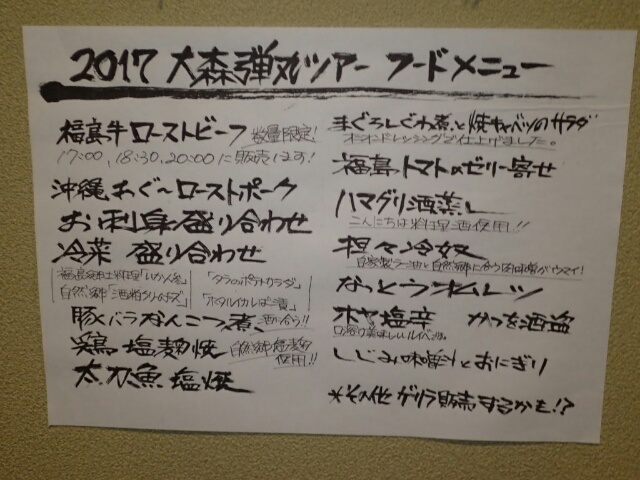 2017 大森弾丸ツアー フードメニュー
福島牛ローストビーフ 数量限定!
17:00, 18:30, 20:00に販売します!
沖縄あぐ〜ローストポーク
お刺身盛り合わせ
冷菜 盛り合わせ
福島郷土料理「いか人参」 「タラのポテトサラダ」
自然郷「酒粕クリームチーズ」 「ホタルイカしば漬」
豚バラなんこつ煮 酒に合う!!
鶏塩麹焼 自然郷塩麹使用!!
太刀魚塩焼
まぐろしぐれ煮と焼キャベツのサラダ
オニオンドレッシングで仕上げました。
福島トマトのゼリー寄せ
ハマグリ酒蒸し
こんにちは料理酒使用!!
担々冷奴
自家製ラー油と自然郷に合う肉味噌がウマイ!
なっとうオムレツ
ホヤ塩辛 かつを酒盗
口溶け美味しいルイベで。
しじみ味噌汁とおにぎり
*その他ゲリラ販売するかも!?